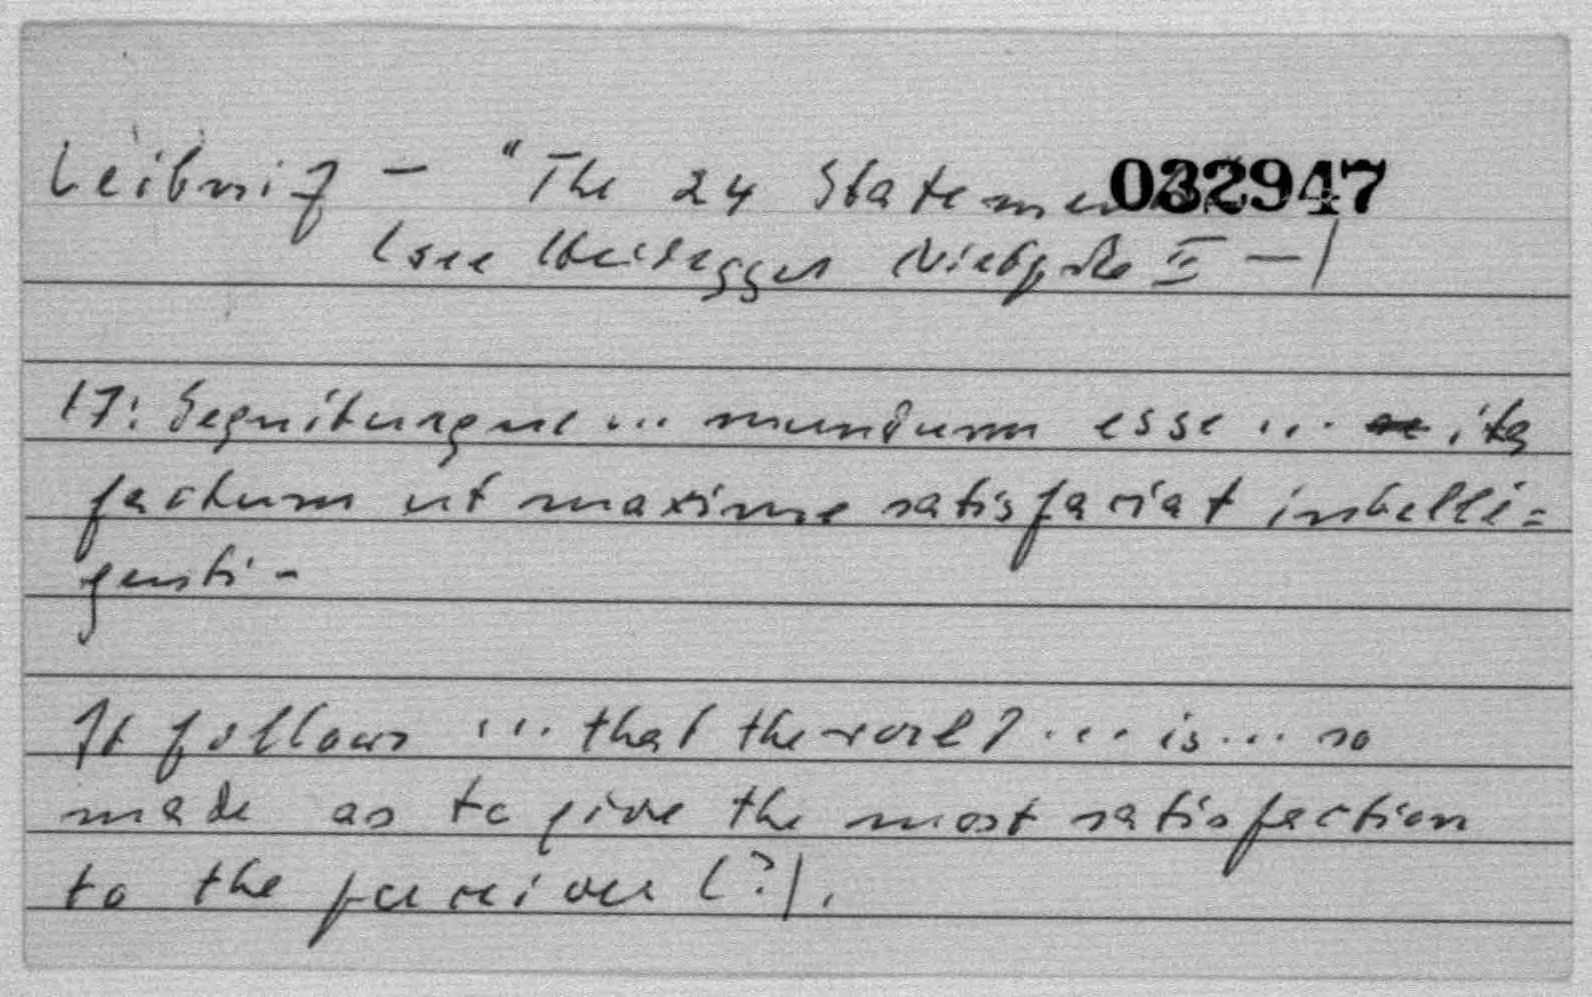 Leibniz – "The 24 Statemen 032947
(see Heidegger Nietzsche II —)
17: Sequiturque ... mundum esse ... ita
factum ut maxime satisfaciat intelli=
genti –
It follows ... that the world ... is ... so
made as to give the most satisfaction
to the perceiver (?).